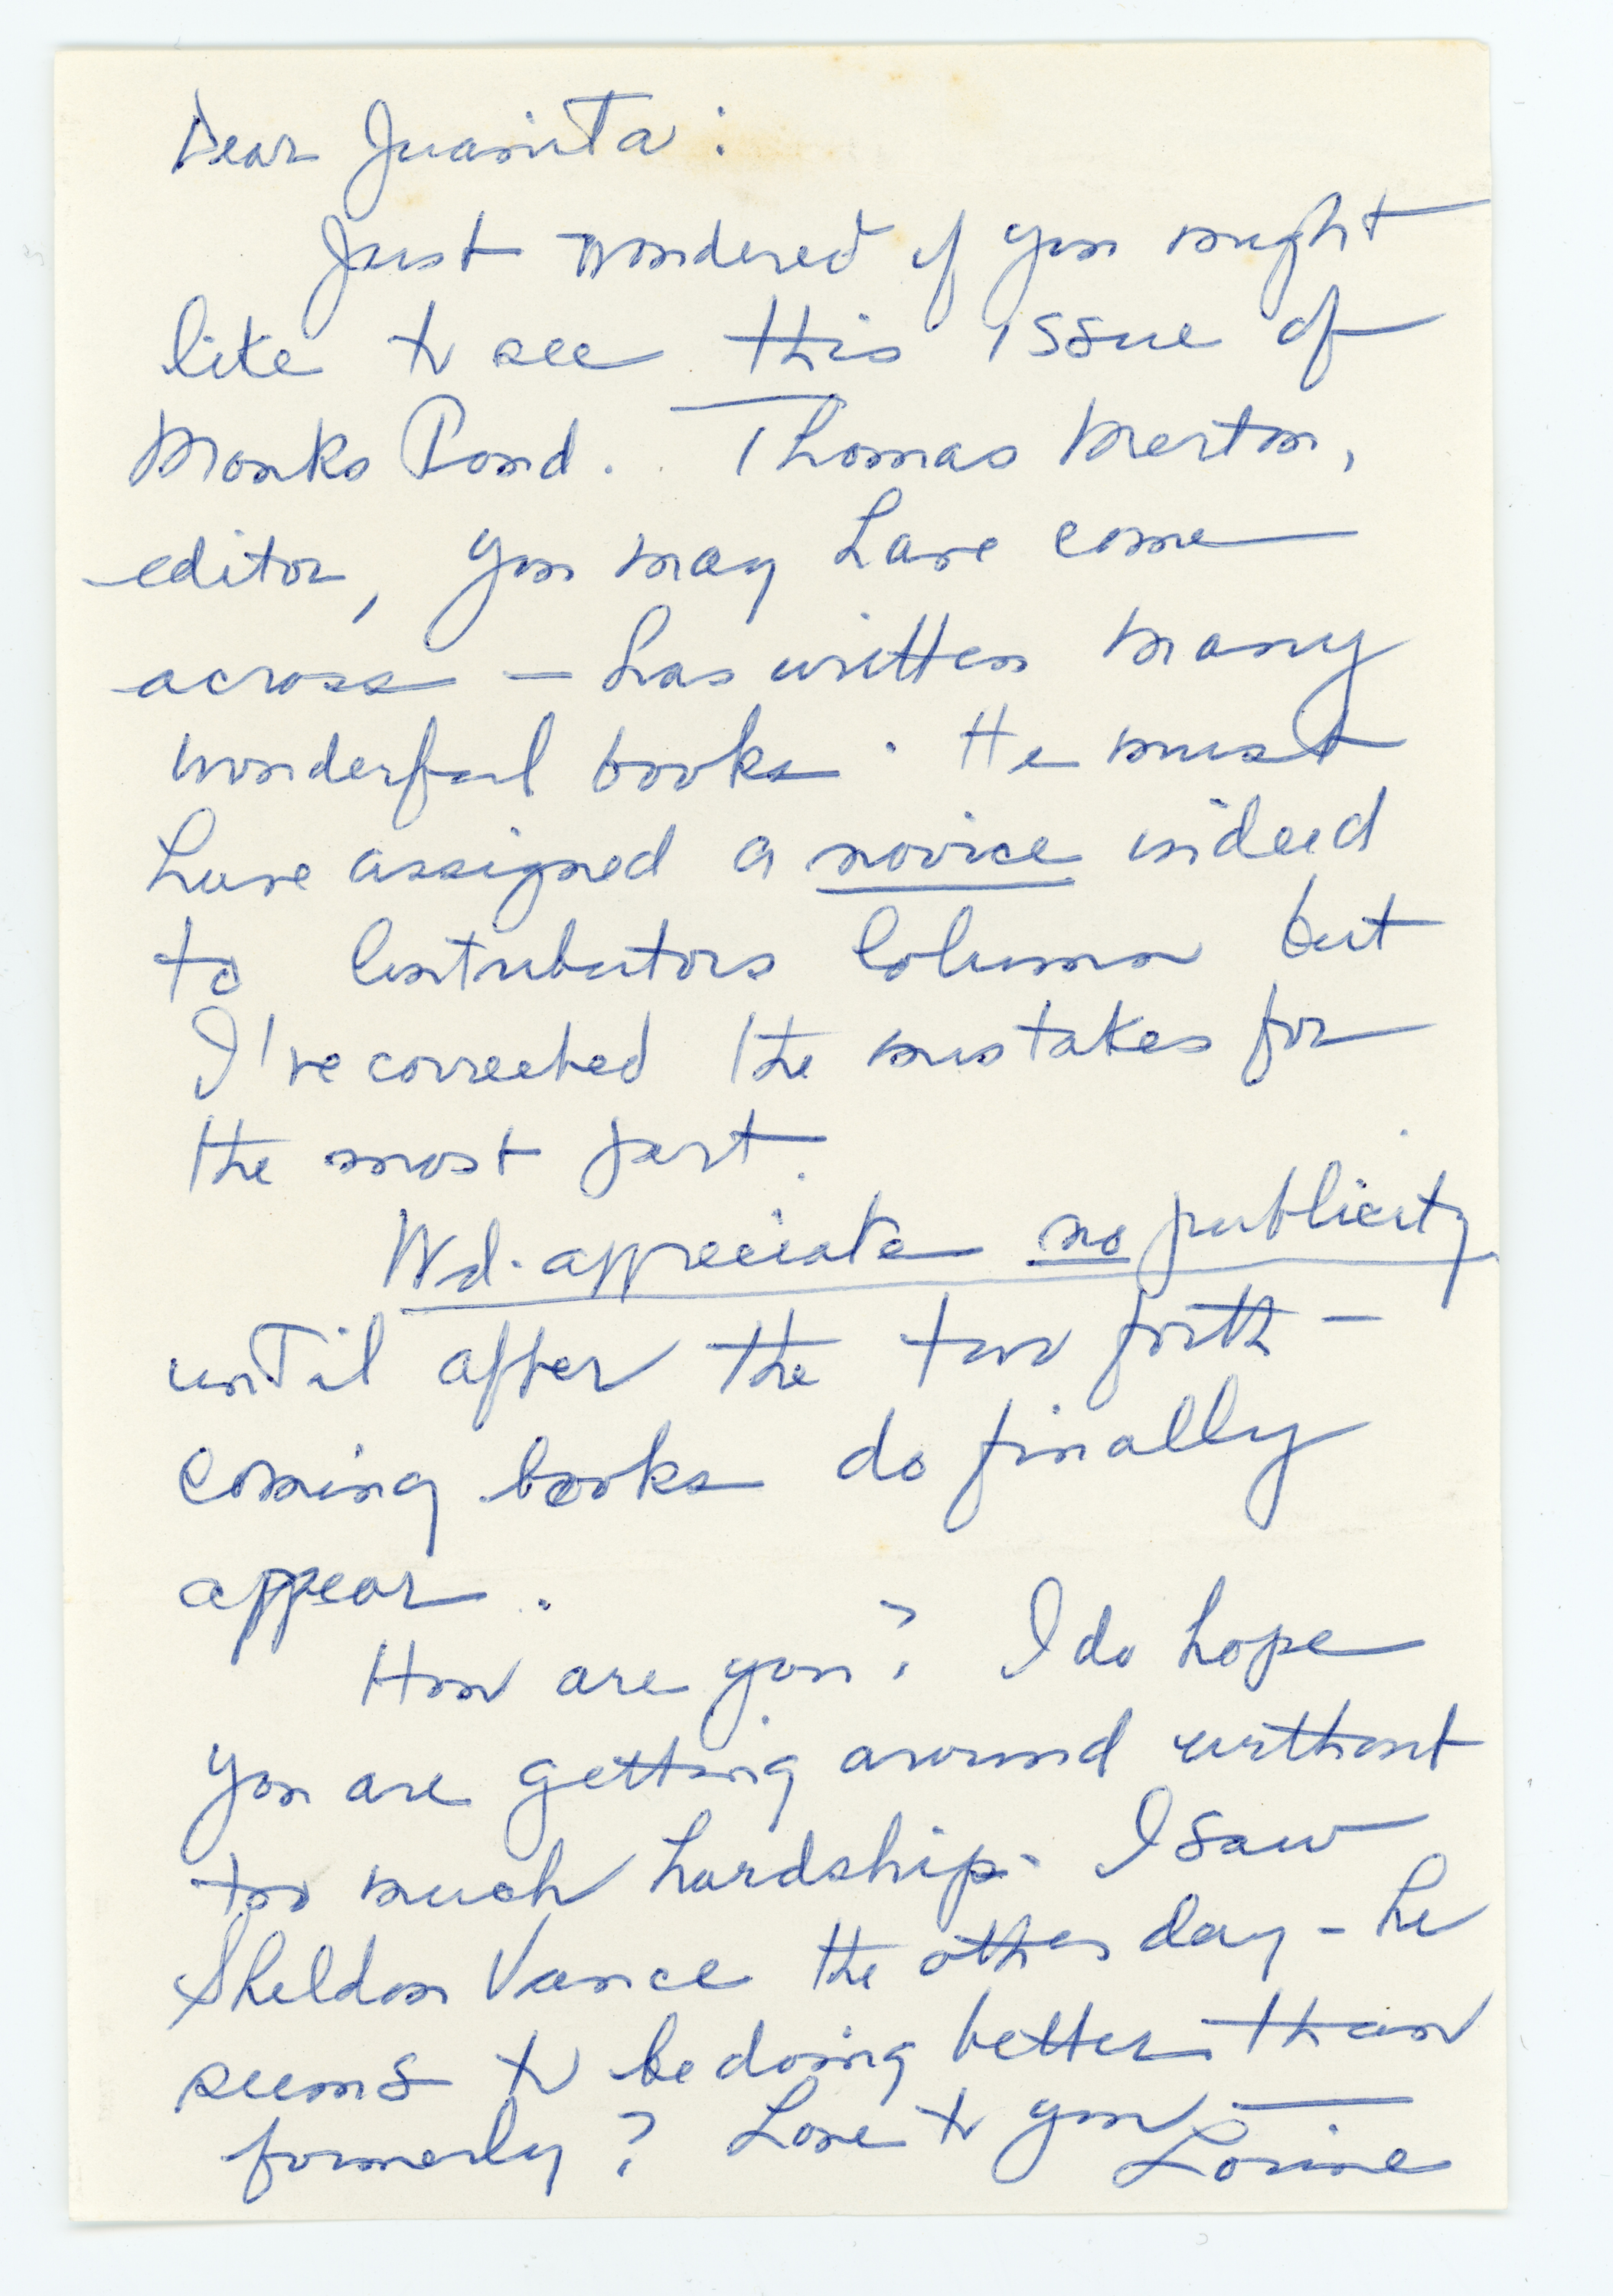 Dear Juanita:
Just wondered if you might
like to see this issue of
Monks Pond. Thomas Merton,
editor, you may have come
across — has written many
wonderful books. He must
have assigned a novice indeed
to Contributors Column but
I've corrected the mistakes for
the most part.
Wd. appreciate no publicity
until after the two forth-
coming books do finally
appear.
How are you? I do hope
you are getting around without
too much hardship. I saw
Sheldon Vance the other day - he
seems to be doing better than
formerly? Love to you —
Lorine